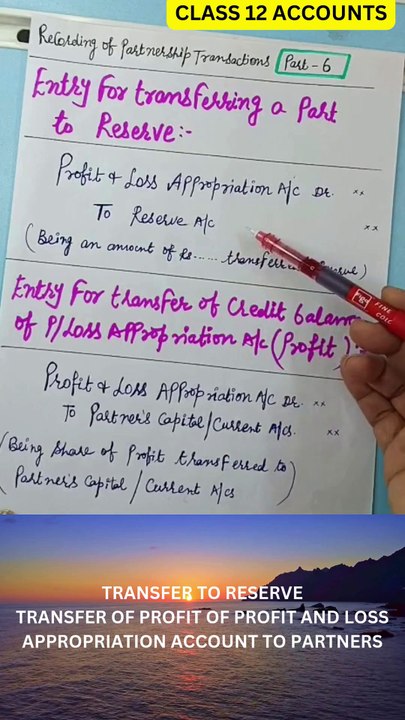 CLASS 12 ACCOUNTS
Recording of Partnership Transactions Part-6
Entry For transferring a Part
to Reserve:-
Profit & Loss Appropriation A/c Dr. xx
To Reserve A/c xx
(Being an amount of Rs......
Entry For transfer of Credit balance
of P/Loss Appropriation A/c (Profit)
Profit & Loss Appropriation A/c Dr. xx
To Partner's Capital/Current A/cs. xx
(Being Share of Profit transferred to
Partner's Capital / Current A/cs)
FINE
TRANSFER TO RESERVE
TRANSFER OF PROFIT OF PROFIT AND LOSS
APPROPRIATION ACCOUNT TO PARTNERS